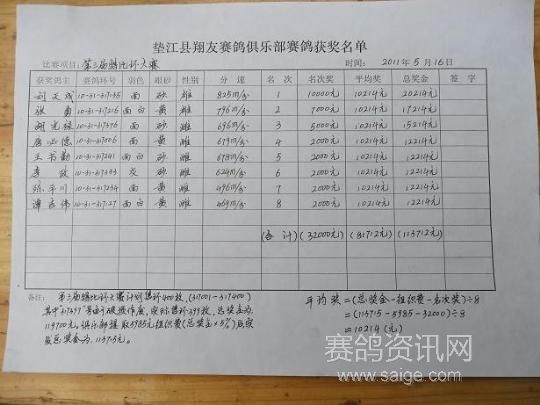 垫江县翔友赛鸽俱乐部赛鸽获奖名单
比赛项目: 第三届鸽比环大赛 时间: 2011年5月16日
获奖鸽主 赛鸽环号 羽色 眼砂 性别 分速 名次 名次奖 平均奖 总奖金 签字
10-31-317 雨 砂 雄 825m/分 1 10000元 10214元 20214元
张勇 10-31-317216 雨白 黄 雄 796m/分 2 7000元 10214元 17214元
10-31-317376 雨 砂 雌 696m/分 3 5000元 10214元 15214元
10-31-317006 雨 黄 雌 679m/分 4 2000元 10214元 12214元
王书勤 10-31-317241 雨白 砂 雌 678m/分 5 2000元 10214元 12214元
李 10-31-317 灰 砂 雌 624m/分 6 2000元 10214元 12214元
张平川 10-31-317234 雨 黄 雌 496m/分 7 2000元 10214元 12214元
谭 伟 10-31-317127 雨白 黄 雌 469m/分 8 2000元 10214元 12214元
(合计) (32000元) (81712元) (113712元)
备注: 第三届鸽比环大赛计划售环400枚,(317001-317400)
其中"317397"号由于破损作废,实际售环399枚,总奖金为
119700元。俱乐部提取5985元组织费(总奖金×5%)后实
发总奖金为:113715元。
平均奖=(总奖金-组织费-名次奖)÷8
=(113715-5985-32000)÷8
=10214(元)
赛鸽资讯网
www.saige.com